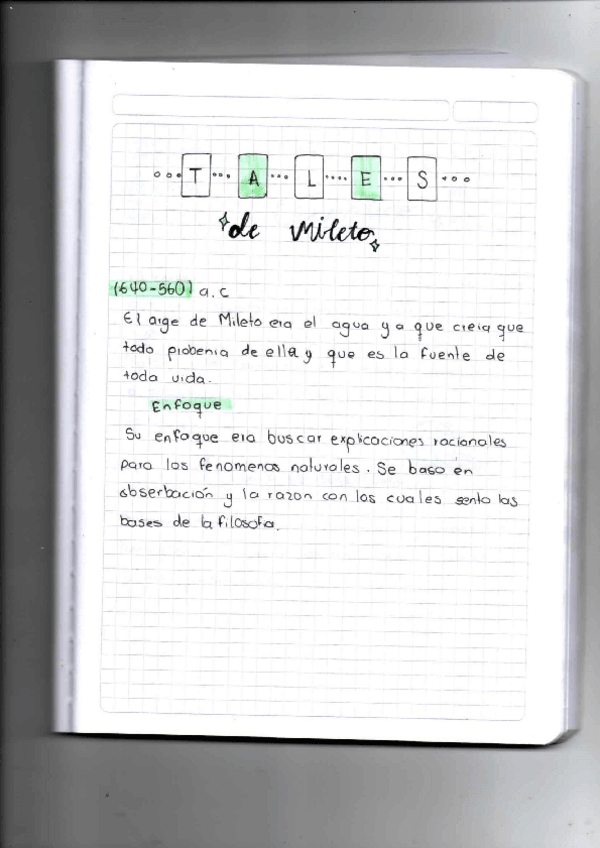 TALES
de Mileto
(640-560) a.c
El arge de Mileto era el agua ya que creia que
todo probenia de ella y que es la fuente de
toda vida.
Enfoque
Su enfoque era buscar explicaciones racionales
para los fenomenos naturales. Se baso en
obserbación y la razon con los cuales sento las
bases de la filosofa.